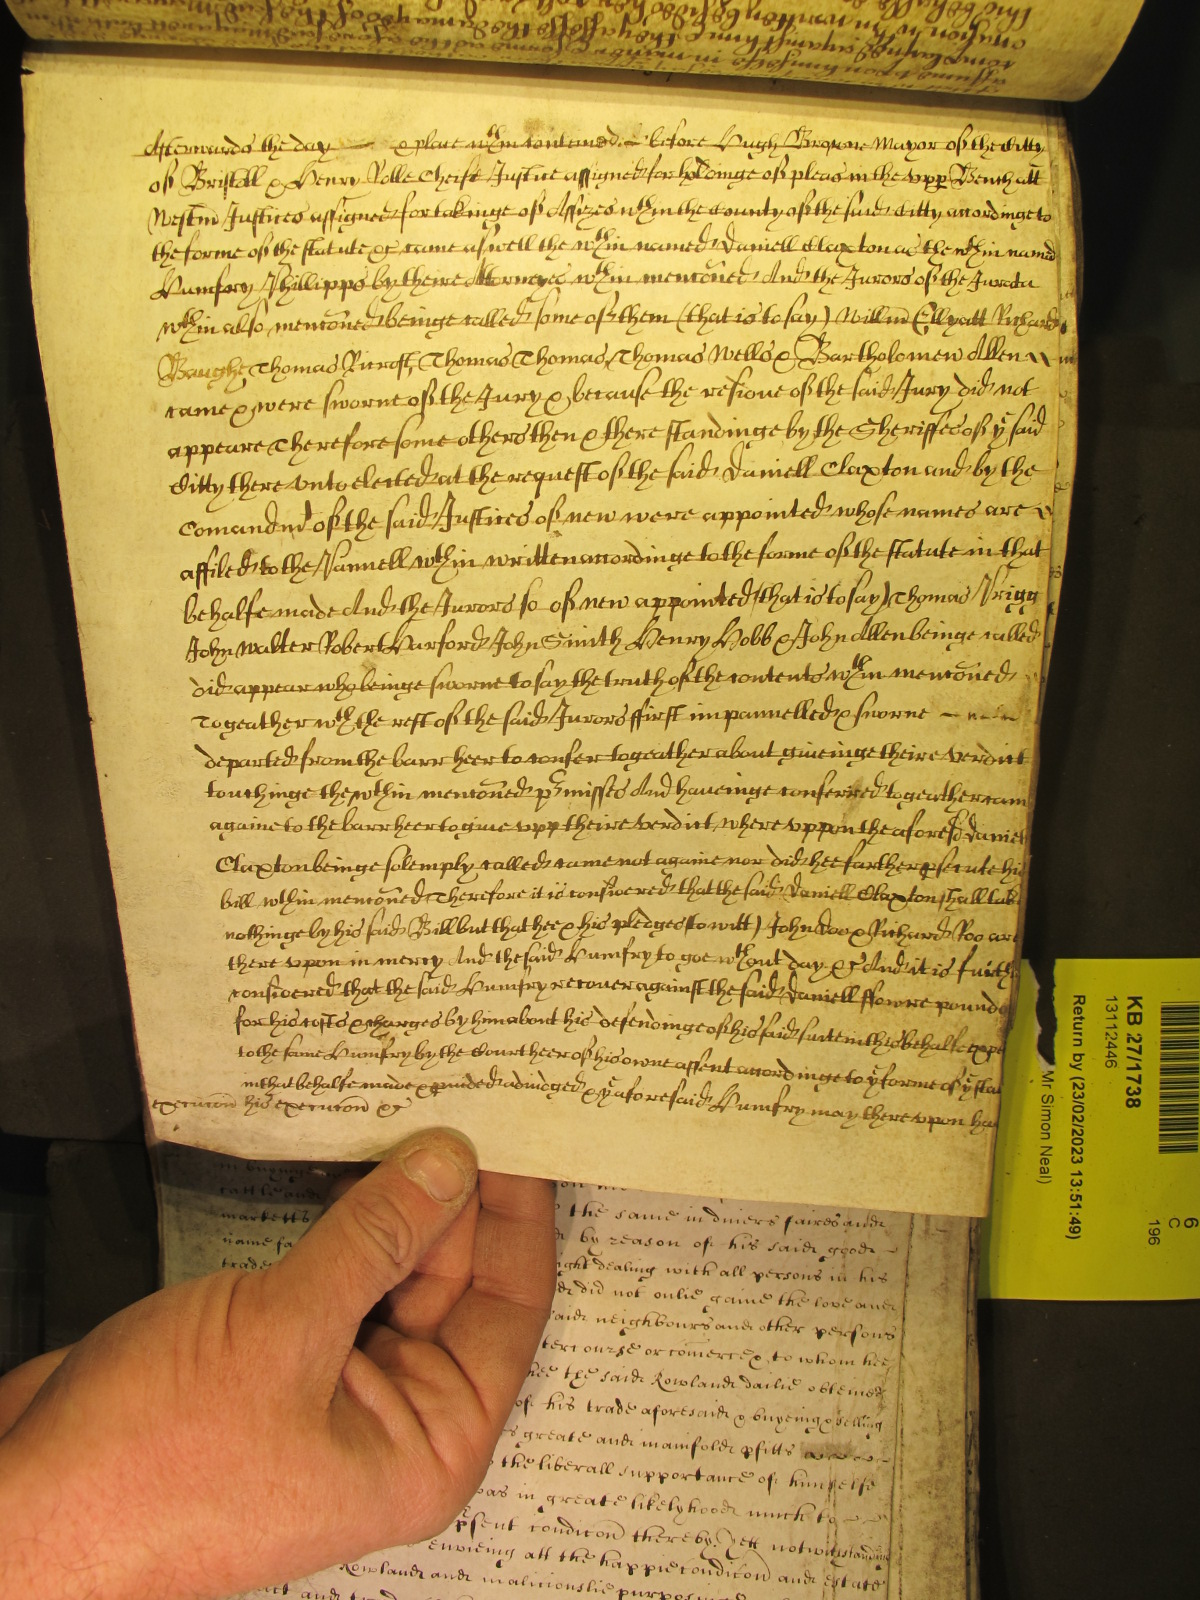 Afterwards the day & place wthin conteined before Hugh Browne Mayor of the Citty
of Bristoll & Henry Rolle Cheife Justice assigned for holdinge of pleas in the upp Bench att
Westm Justices assigned for takinge of Assizes wthin the County of the said Citty accordinge to
the forme of the statute &c came aswell the wthin named Daniell Claxton as the wthin named
Humfry Phillipps by theire Attorneyes wthin mencõned And the Jurors of the Jurata
wthin also mencõned beinge called some of them (that is to say) Willm Ellyatt Richard
Baughe Thomas Ricroft, Thomas Thomas, Thomas Wells & Bartholomew Allen
came & were sworne of the Jury & because the residue of the said Jury did not
appeare Therefore some others then & there standinge by the Sheriffes of ye said
Citty there unto elected at the request of the said Daniell Claxton and by the
Comandmt of the said Justices of new were appointed whose names are
affiled to the Pannell wthin written accordinge to the forme of the statute in that
behalfe made And the Jurors so of new appointed (that is to say) Thomas Prigg
John Walter Robert Harford John Smith Henry Hobb & John Allen beinge called
did appear who beinge sworne to say the truth of the contents wthin mencõned
Togeather wth the rest of the said Jurors ffirst impannelled & sworne
departed from the barr heer to confer togeather about giveinge theire verdict
touchinge the wthin mencõned pmisses And haveinge conferred togeather cam
againe to the barr heer to give upp theire verdict, where uppon the aforesd Daniel
Claxton beinge solemply called came not againe nor did hee farther psecute his
bill wthin mencõned Therefore it is considered that the said Daniell Claxton shall take
nothinge by his said Bill but that hee & his pledges (to witt) John Doo & Richard Roo are
there upon in mercy And the said Humfry to goe wthout day &c And it is further
considered that the said Humfry recover against the said Daniell ffowre pounds
for his costs & charges by him about his defendinge of his said suite in this behalfe expe
to the same Humfry by the Court heer of his owne assent accordinge to ye forme of ye stat
in that behalfe made & pvided adiudged & ye aforesaid Humfry may there upon have
execucõn his execucõn &c
cattle and
marketts
name fa
trade
the same in divers faires and
by reason of his said goode
ght dealing with all persons in his
did not onlie gaine the love and
said neighbours and other persons
tercourse or comerce & to whom hee
hee the said Rowland dailie obteined
of his trade aforesaid & buyeing & selling
s greate and manifold pfitts
the liberall supportance of himselfe
was in greate likelyhood much to
psent condicõn thereby, Yett notwithstanding
envieing att the happie condicõn and estate
Rowland and maliciouslie purposing
KB 27/1738
13112446
Return by (23/02/2023 13:51:49)
Mr Simon Neal)
6
C
196